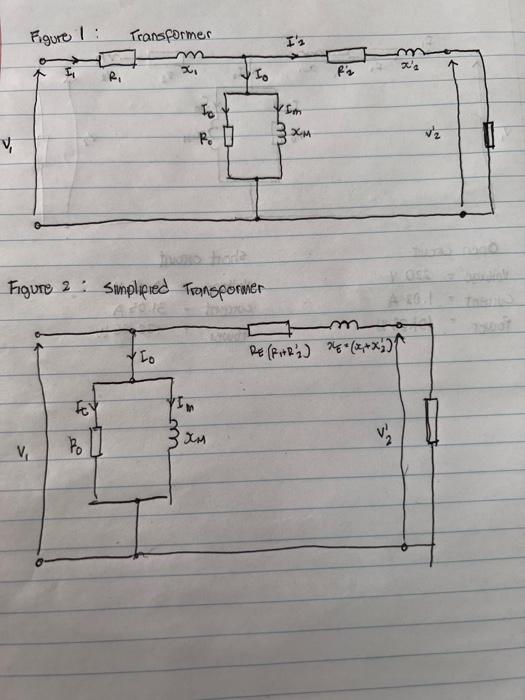 Figure 1 : Transformer
I₁ R₁ x₁ I'₂ R'₂ x'₂
I₀
Ic Im
R₀ xM
V₁ V'₂
Figure 2 : Simplified Transformer
RE (R₁+R'₂) xE=(x₁+x'₂)
I₀
Ic Im
R₀ xM
V₁ V'₂